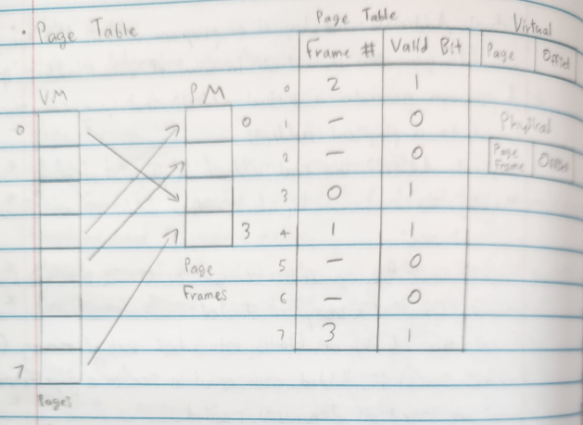 • Page Table
VM
PM
0
7
Pages
0
3
Page
Frames
Page Table
Frame # Valid Bit
0 2 1
1 – 0
2 – 0
3 0 1
4 1 1
5 – 0
6 – 0
7 3 1
Virtual
Page Offset
Physical
Page Offset
Frame